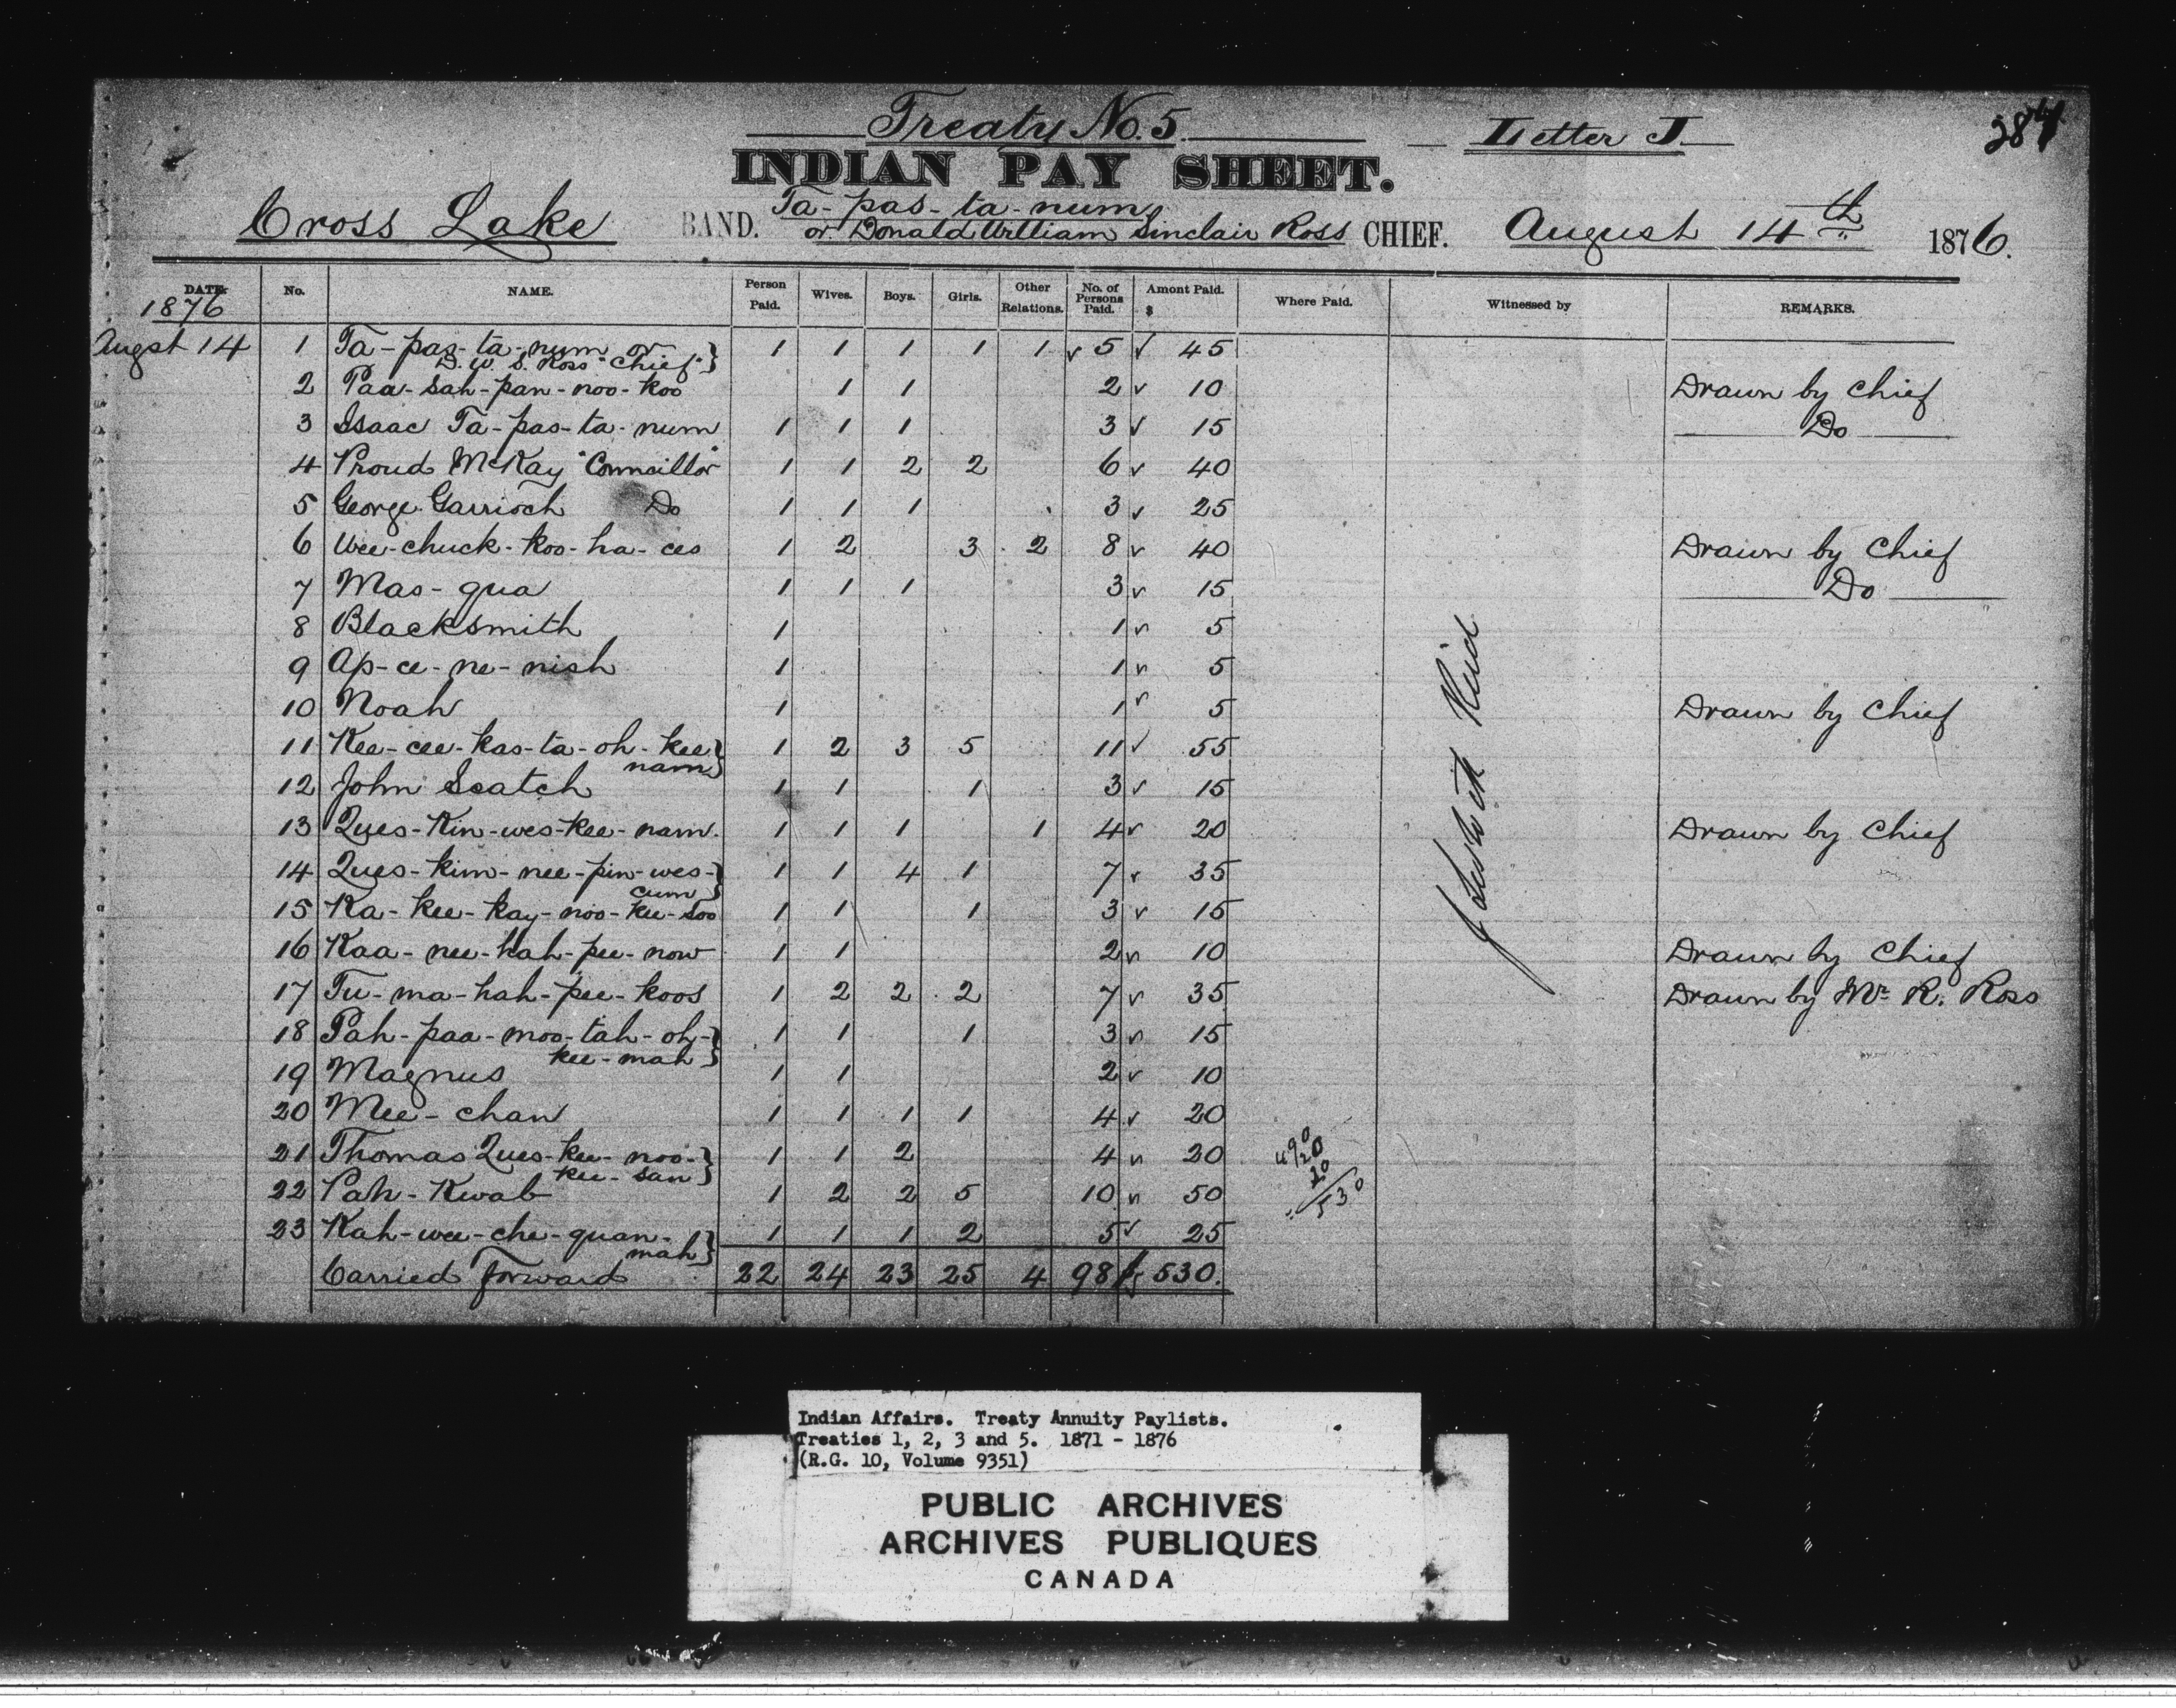 Treaty No. 5. Letter J 284
INDIAN PAY SHEET.
Cross Lake BAND. Ta-pas-ta-num CHIEF. August 14th 1876.
or Donald William Sinclair Ross
DATE. No. NAME. Person Paid. Wives. Boys. Girls. Other Relations. No. of Persons Paid. Amont Paid. $ Where Paid. Witnessed by REMARKS.
1876
Augst 14 1 Ta-pas-ta-num or 1 1 1 1 1 5 45
D. W. S. Ross "Chief"
2 Paa-sah-pan-noo-koo 1 1 2 10 Drawn by Chief
3 Isaac Ta-pas-ta-num 1 1 1 3 15 Do
4 Proud McKay "Councillor" 1 1 2 2 6 40
5 George Garrioch Do 1 1 1 3 25
6 Wee-chuck-koo-ha-ces 1 2 3 2 8 40 Drawn by Chief
7 Mas-qua 1 1 1 3 15 Do
8 Blacksmith 1 1 5
9 Ap-ce-ne-nish 1 1 5
10 Noah 1 1 5 Drawn by Chief
11 Kee-cee-kas-ta-oh-kee 1 2 3 5 11 55
nam
12 John Scatch 1 1 1 3 15
13 Ques-Kin-wes-kee-nam. 1 1 1 1 4 20 Drawn by Chief
14 Ques-kim-nee-pin-wes- 1 1 4 1 7 35
cum
15 Ka-kee-kay-noo-kee-soo 1 1 1 3 15
16 Kaa-nee-kah-pee-now 1 1 2 10 Drawn by Chief
17 Tu-ma-hah-pee-koos 1 2 2 2 7 35 Drawn by Mr R. Ross
18 Pah-paa-moo-tah-oh- 1 1 1 3 15
kee-mah
19 Magnus 1 1 2 10
20 Mee-chan 1 1 1 1 4 20
21 Thomas Ques-kee-noo- 1 1 2 4 20
kee-san
22 Pah-Kwab 1 2 2 5 10 50
23 Kah-wee-che-quan- 1 1 1 2 5 25
mah
Carried forward 22 24 23 25 4 98 $530.
490
20
20
530
Reid
Indian Affairs. Treaty Annuity Paylists.
Treaties 1, 2, 3 and 5. 1871 - 1876
(R.G. 10, Volume 9351)
PUBLIC ARCHIVES
ARCHIVES PUBLIQUES
CANADA